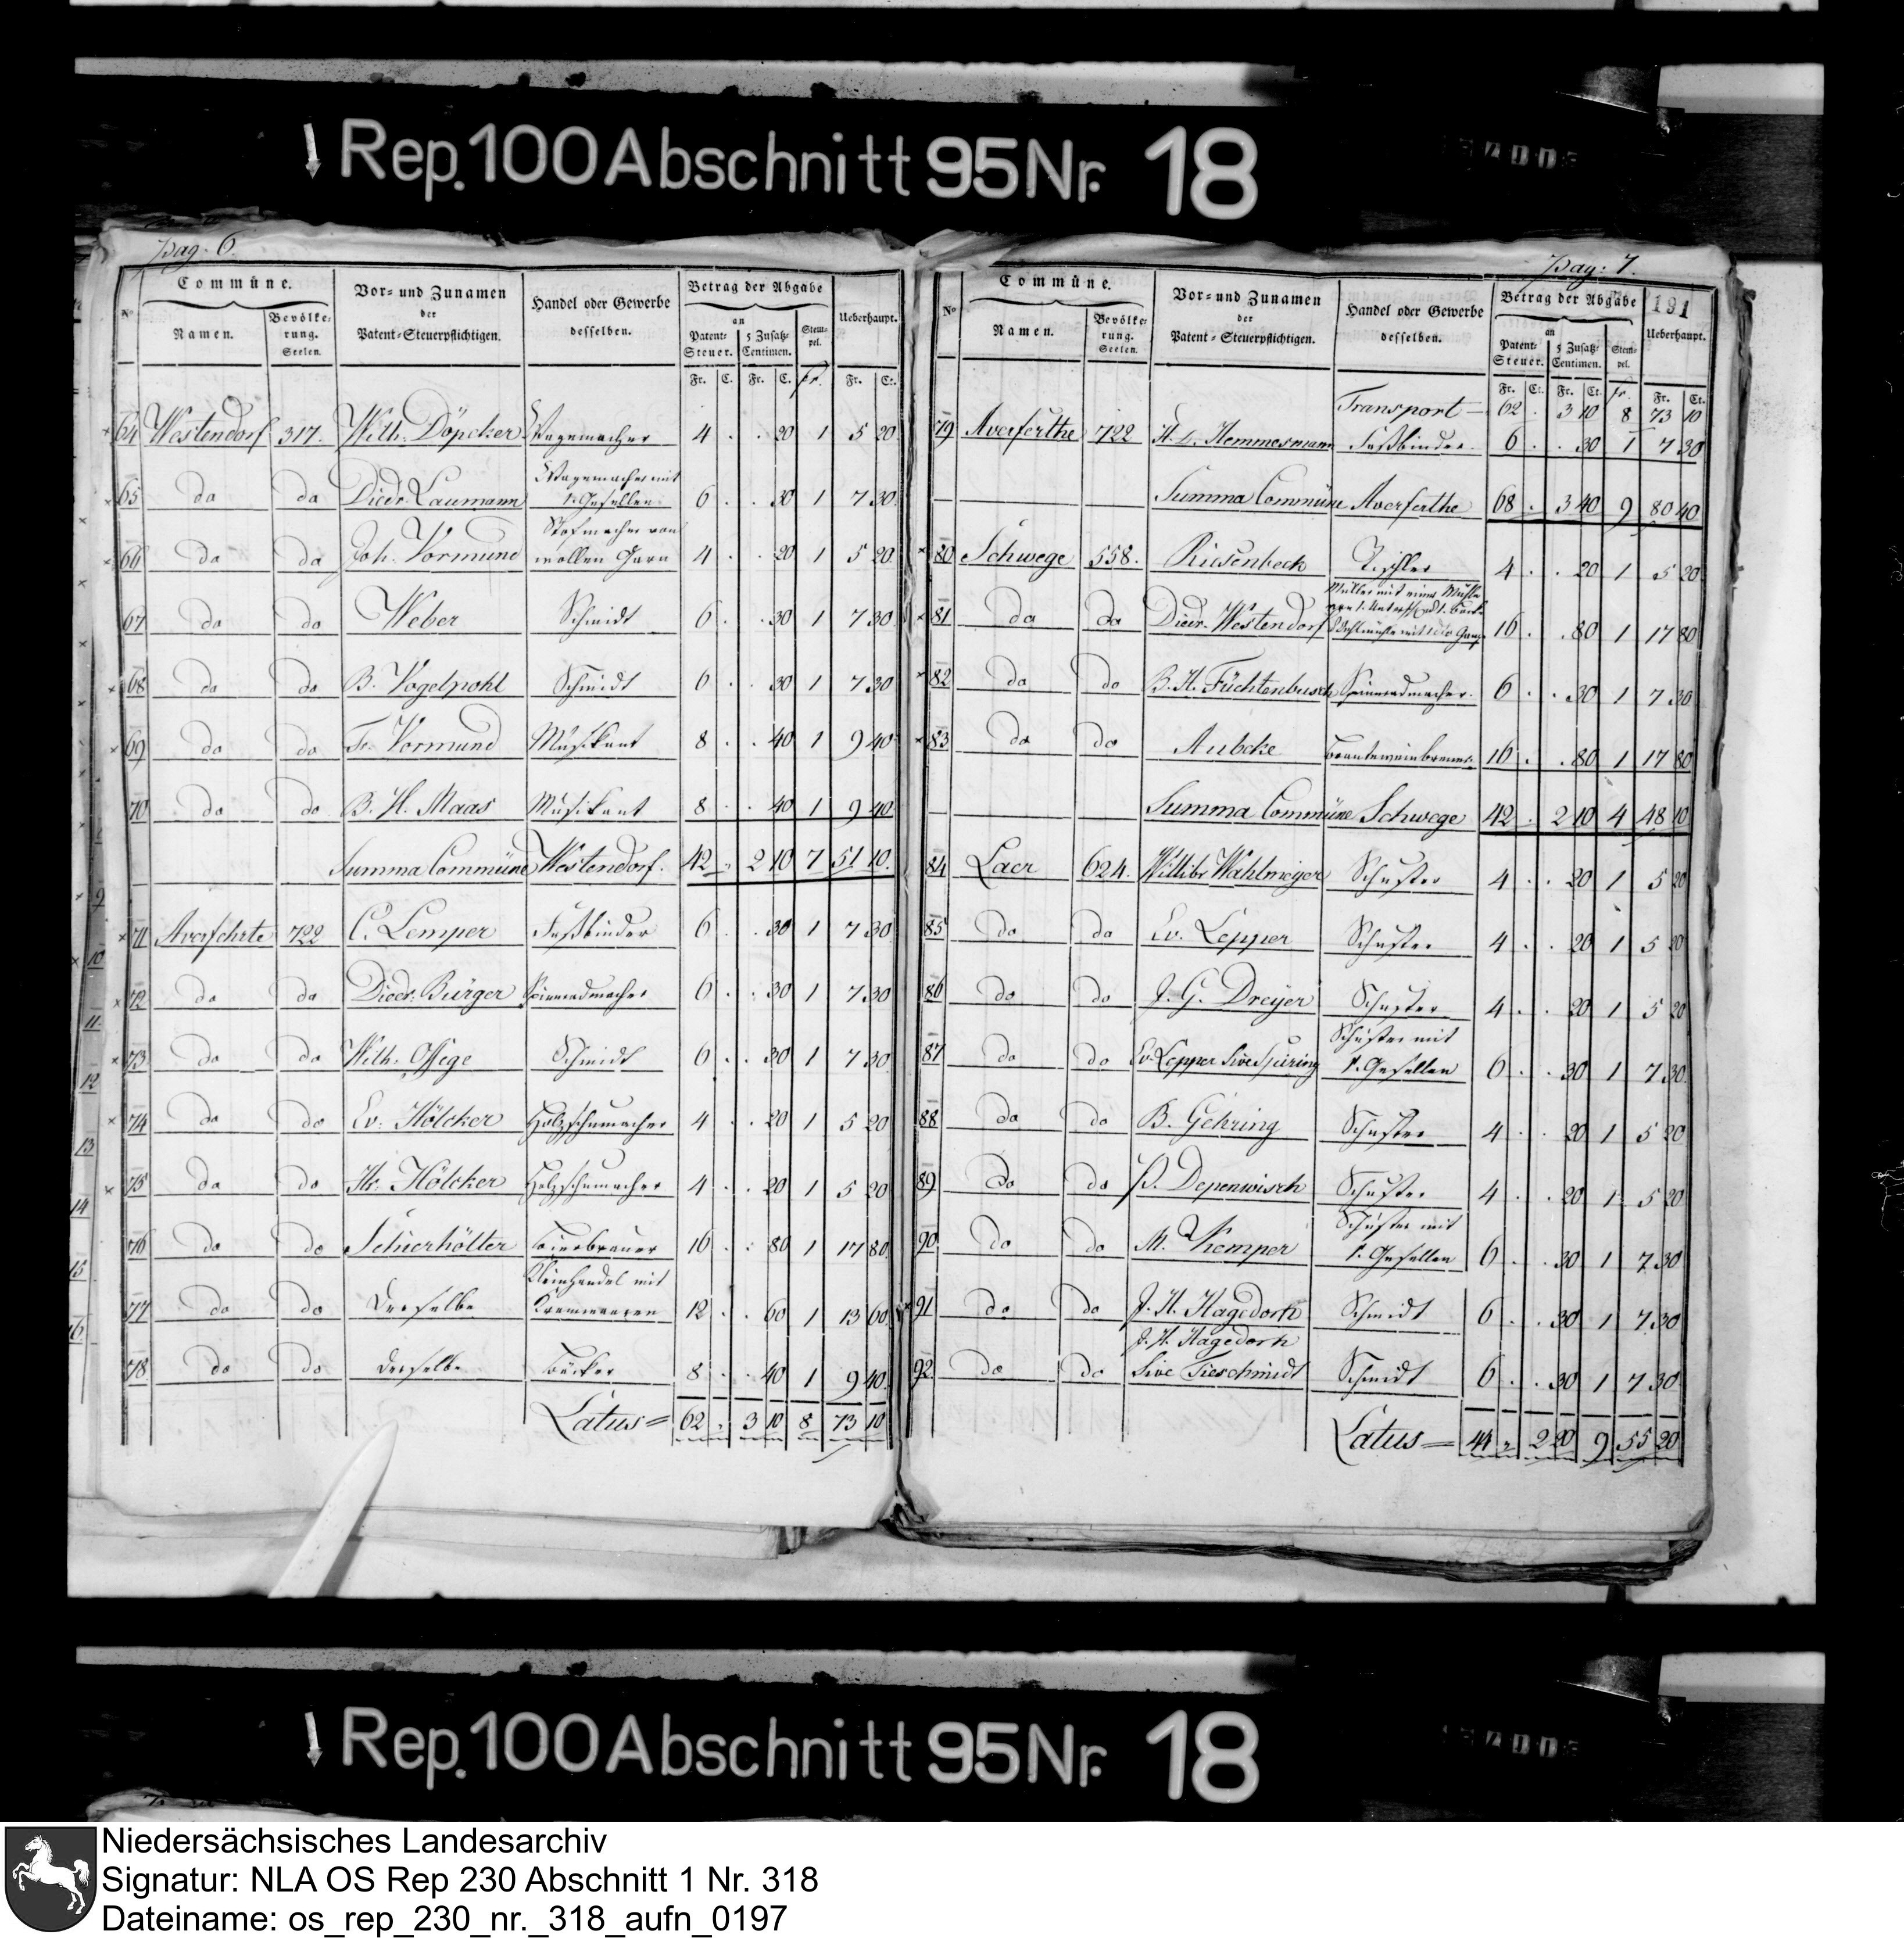 Rep. 100 Abschnitt 95 Nr. 18
pag. 6.
Commüne.
Vor- und Zunamen
der
Patent-Steuerpflichtigen.
Handel oder Gewerbe
desselben.
Betrag der Abgabe
Ueberhaupt.
No
Namen.
Bevölke-
rung.
Seelen.
an
Patent-
Steuer.
5 Zusatz-
Centimen.
Stem-
pel.
Fr. C. Fr. C. fr. Fr. Ct.
64 Westendorf 317. Wilh. Döpcker Wagemacher 4 . . 20 1 5 20
Wagemacher mit
65 do do Diedr. Laumann 1. Gesellen 6 . . 30 1 7 30
Stofmacher von
66 do do Joh. Vormund wollen Garn 4 . . 20 1 5 20
67 do do Weber Schmidt 6 . . 30 1 7 30
68 do do B. Vogelpohl Schmidt 6 . . 30 1 7 30
69 do do Fr. Vormund Musikant 8 . . 40 1 9 40
70 do do B. H. Maas Musikant 8 . . 40 1 9 40
Summa Commüne Westendorf. 42 . 2 10 7 51 10
71 Averfehrte 722 C. Lemper Faßbinder 6 . . 30 1 7 30
72 do do Diedr. Bürger Spinradmacher 6 . . 30 1 7 30
73 do do Wilh. Ossege Schmidt 6 . . 30 1 7 30
74 do do Ev. Hölcker Holzschumacher 4 . . 20 1 5 20
75 do do Hr. Hölcker Holzschumacher 4 . . 20 1 5 20
76 do do Schierhölter Bierbrauer 16 . . 80 1 17 80
Kleinhandel mit
77 do do Derselbe Kramwaren 12 . . 60 1 13 60
78 do do Derselbe Bäcker 8 . . 40 1 9 40
Latus = 62 . 3 10 8 73 10
pag. 7.
191
Commüne.
Vor- und Zunamen
der
Patent-Steuerpflichtigen.
Handel oder Gewerbe
desselben.
Betrag der Abgabe
Ueberhaupt.
No
Namen.
Bevölke-
rung.
Seelen.
an
Patent-
Steuer.
5 Zusatz-
Centimen.
Stem-
pel.
Fr. Ct. Fr. Ct. fr. Fr. Ct.
Transport — 62 . 3 10 8 73 10
79 Averferthe 722 H. L. Hemmesmann Faßbinder 6 . . 30 1 7 30
Summa Commüne Averferthe 68 . 3 40 9 80 40
80 Schwege 558. Riesenbeck Tischler 4 . . 20 1 5 20
Müller mit einer Mühle
81 do do Diedr. Westendorf 16 . . 80 1 17 80
82 do do B. H. Füchtenbusch Spinradmacher 6 . . 30 1 7 30
83 do do Aubcke Branteweinbrener 16 . . 80 1 17 80
Summa Commüne Schwege 42 . 2 10 4 48 10
84 Laer 624. Willibr. Wahlmeyer Schuster 4 . . 20 1 5 20
85 do do Ev. Lepper Schuster 4 . . 20 1 5 20
86 do do J. G. Dreyer Schuster 4 . . 20 1 5 20
Schuster mit
87 do do Ev. Lepper Sive Spüring 1. Gesellen 6 . . 30 1 7 30
88 do do B. Gehring Schuster 4 . . 20 1 5 20
89 do do P. Depenwisch Schuster 4 . . 20 1 5 20
Schuster mit
90 do do M. Kemper 1. Gesellen 6 . . 30 1 7 30
91 do do J. H. Hagedorn Schmidt 6 . . 30 1 7 30
J. H. Hagedorn
92 do do Sive Tieschmidt Schmidt 6 . . 30 1 7 30
Latus = 44 . 2 20 9 55 20
Rep. 100 Abschnitt 95 Nr. 18
Niedersächsisches Landesarchiv
Signatur: NLA OS Rep 230 Abschnitt 1 Nr. 318
Dateiname: os_rep_230_nr._318_aufn_0197